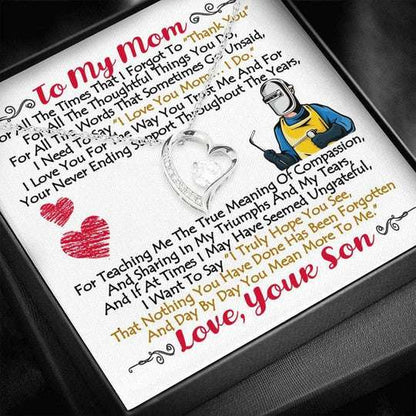 To My Mom
For All The Times That I Forgot To "Thank You"
For All The Thoughtful Things You Do,
For All The Words That Sometimes Go Unsaid,
I Need To Say, "I Love You Mom, I Do."
I Love You For The Way You Trust Me And For
Your Never Ending Support Throughout The Years,
For Teaching Me The True Meaning Of Compassion,
And Sharing In My Triumphs And My Tears,
And If At Times I May Have Seemed Ungrateful,
I Want To Say "I Truly Hope You See,
That Nothing You Have Done Has Been Forgotten
And Day By Day You Mean More To Me."
Love, Your Son